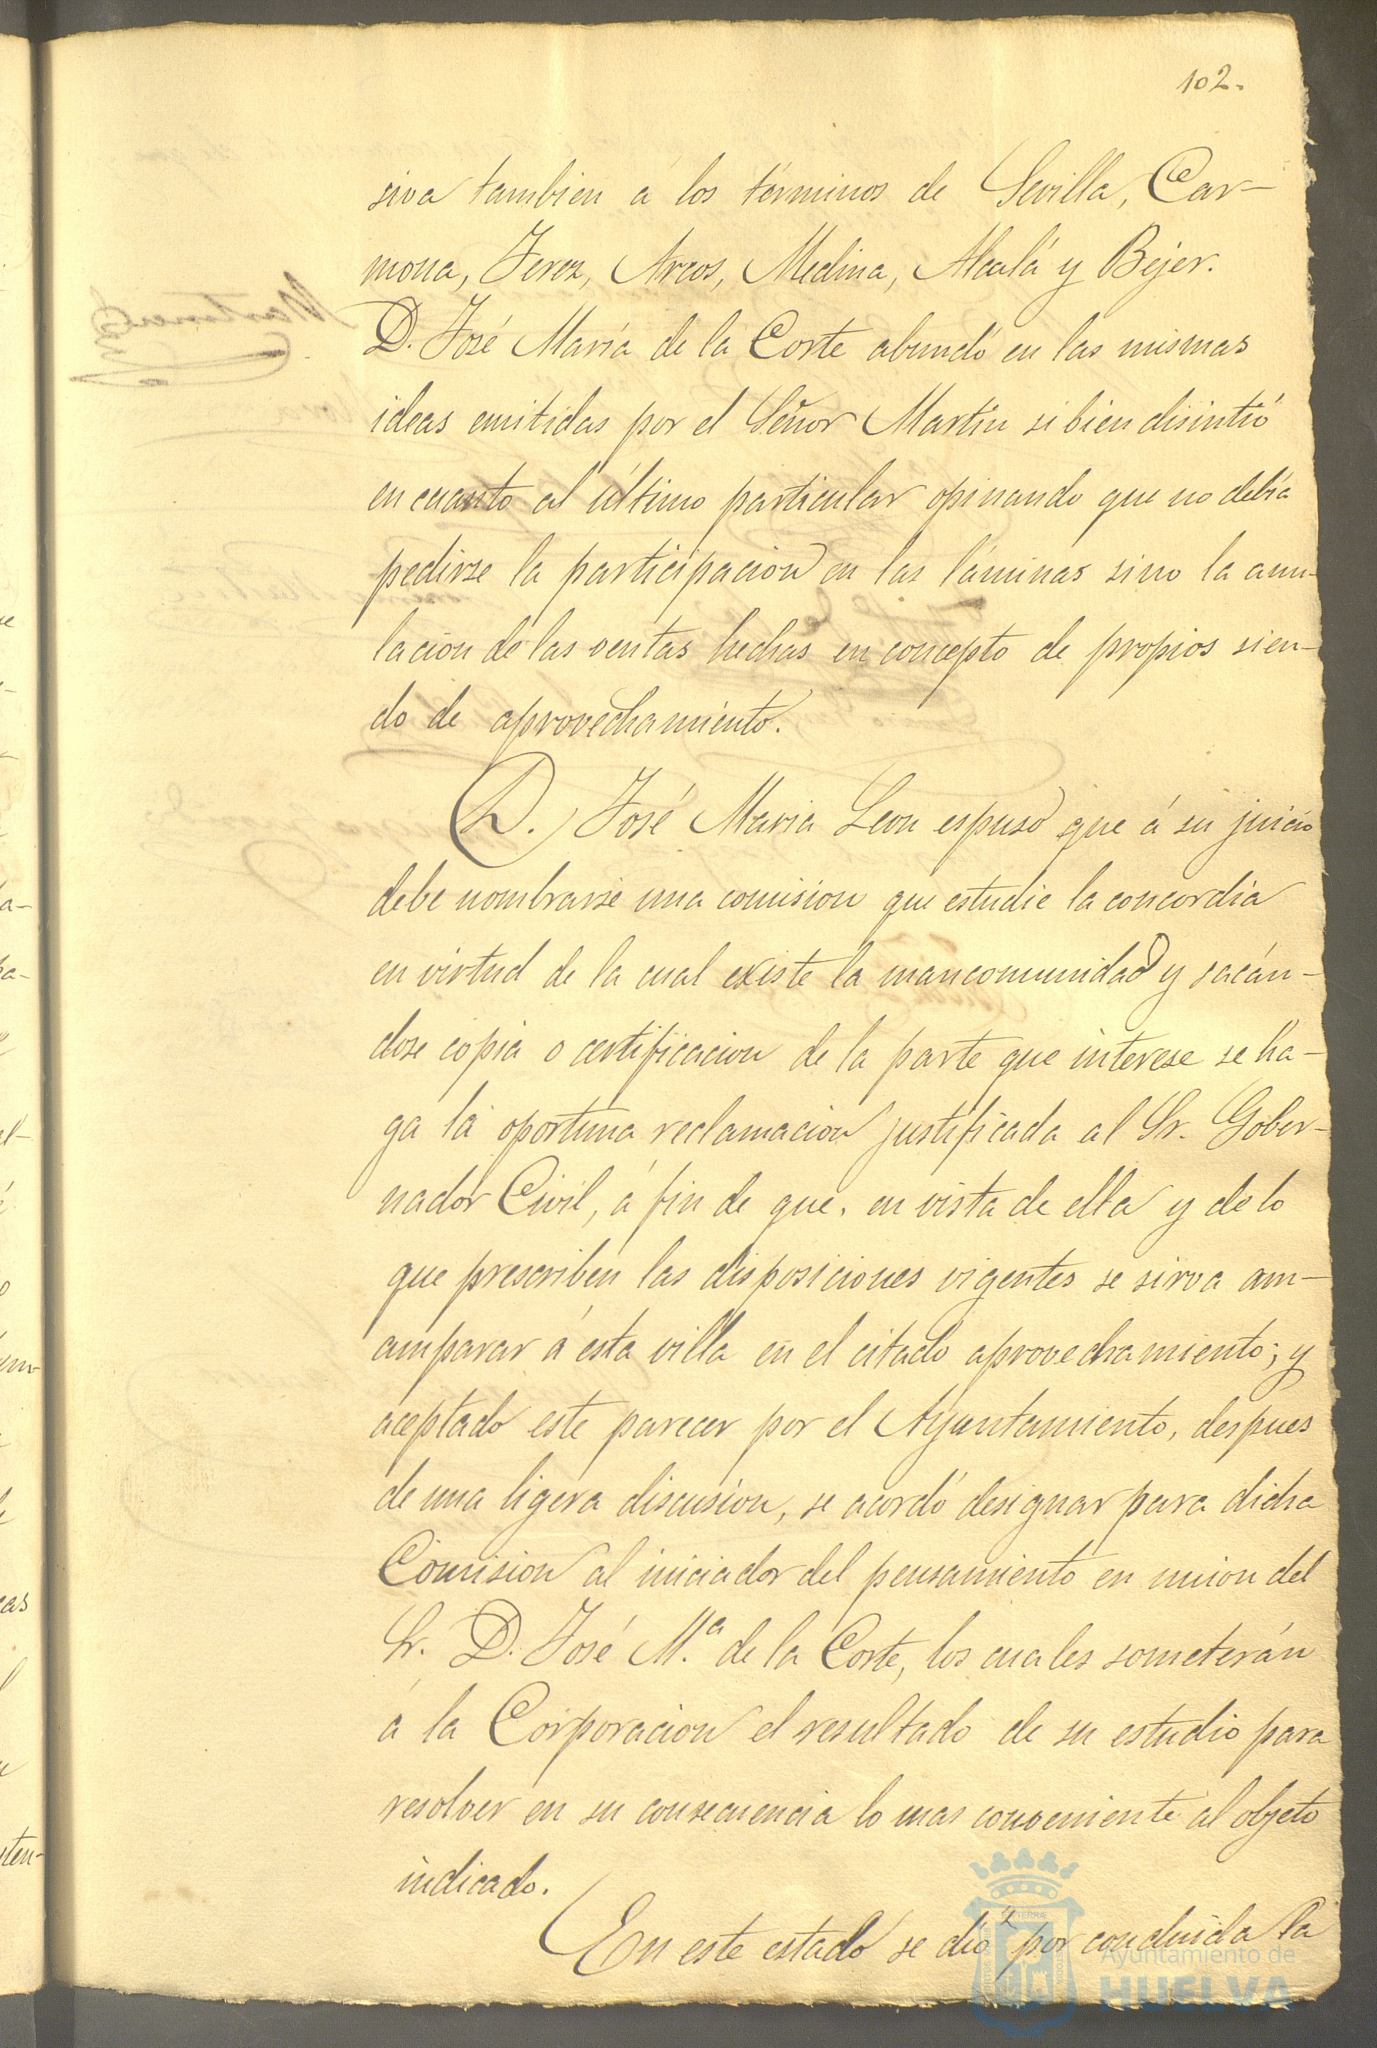 102.
siva tambien á los términos de Sevilla, Car-
mona, Jerez, Arcos, Medina, Alcalá y Bejer.
D. José María de la Corte abundó en las mismas
ideas emitidas por el Señor Martín si bien disintió
en cuanto al último particular opinando que no debía
pedirse la participacion en las láminas sino la anu-
lacion de las ventas hechas en concepto de propios sien-
do de aprovechamiento.
D. José Maria Leon espuso que á su juicio
debe nombrarse una comision que estudie la concordia
en virtud de la cual existe la mancomunidad y sacán-
dose copia o certificacion de la parte que interese se ha-
ga la oportuna reclamacion justificada al Sr. Gober-
nador Civil, á fin de que, en vista de ella y de lo
que prescriben las disposiciones vigentes se sirva am-
amparar á esta villa en el citado aprovechamiento; y
aceptado este parecer por el Ayuntamiento, despues
de una ligera discusion, se acordó designar para dicha
Comision al iniciador del pensamiento en union del
Sr. D. José M.ª de la Corte, los cuales someterán
á la Corporacion el resultado de su estudio para
resolver en su consecuencia lo mas conveniente al objeto
indicado.
En este estado se dió por concluida la
Ayuntamiento de
HUELVA